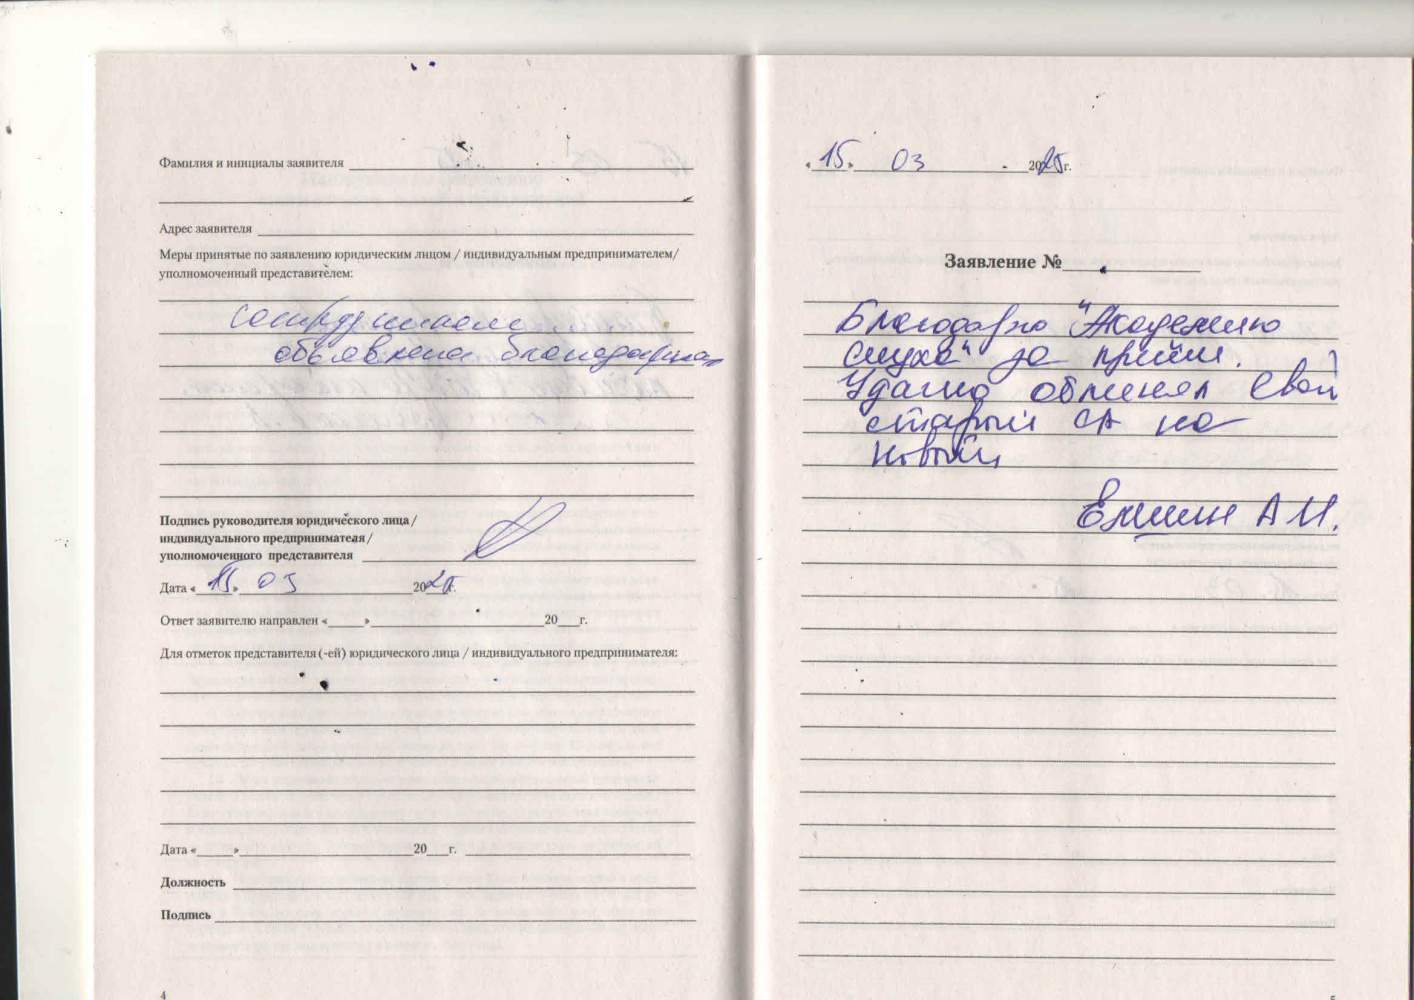 Фамилия и инициалы заявителя
Адрес заявителя
Меры принятые по заявлению юридическим лицом / индивидуальным предпринимателем/
уполномоченный представителем:
сотрудникам
объявлена благодарность
Подпись руководителя юридического лица/
индивидуального предпринимателя/
уполномоченного представителя
Дата «15» 03 2025г.
Ответ заявителю направлен «___»___20__г.
Для отметок представителя (-ей) юридического лица / индивидуального предпринимателя:
Дата «___»___20__г.
Должность
Подпись
4
«15» 03 2025г.
Заявление №
Благодарю "Академию
слуха" за приём.
Удачно обменял свой
старый СА на
новый
А И.
5